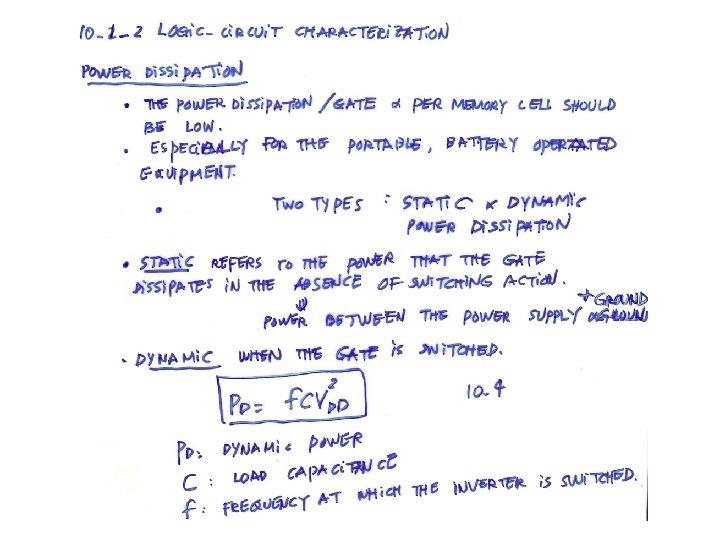 10-1-2 LOGIC-CIRCUIT CHARACTERIZATION
POWER DISSIPATION
• THE POWER DISSIPATION/GATE & PER MEMORY CELL SHOULD
BE LOW.
• ESPECIALLY FOR THE PORTABLE, BATTERY OPERATED
EQUIPMENT.
• TWO TYPES : STATIC & DYNAMIC
POWER DISSIPATION
• STATIC REFERS TO THE POWER THAT THE GATE
DISSIPATES IN THE ABSENCE OF SWITCHING ACTION.
& GROUND
⇓ POWER BETWEEN THE POWER SUPPLY
• DYNAMIC WHEN THE GATE IS SWITCHED.
P_D = fCV²_DD 10.4
P_D: DYNAMIC POWER
C : LOAD CAPACITANCE
f : FREQUENCY AT WHICH THE INVERTER IS SWITCHED.